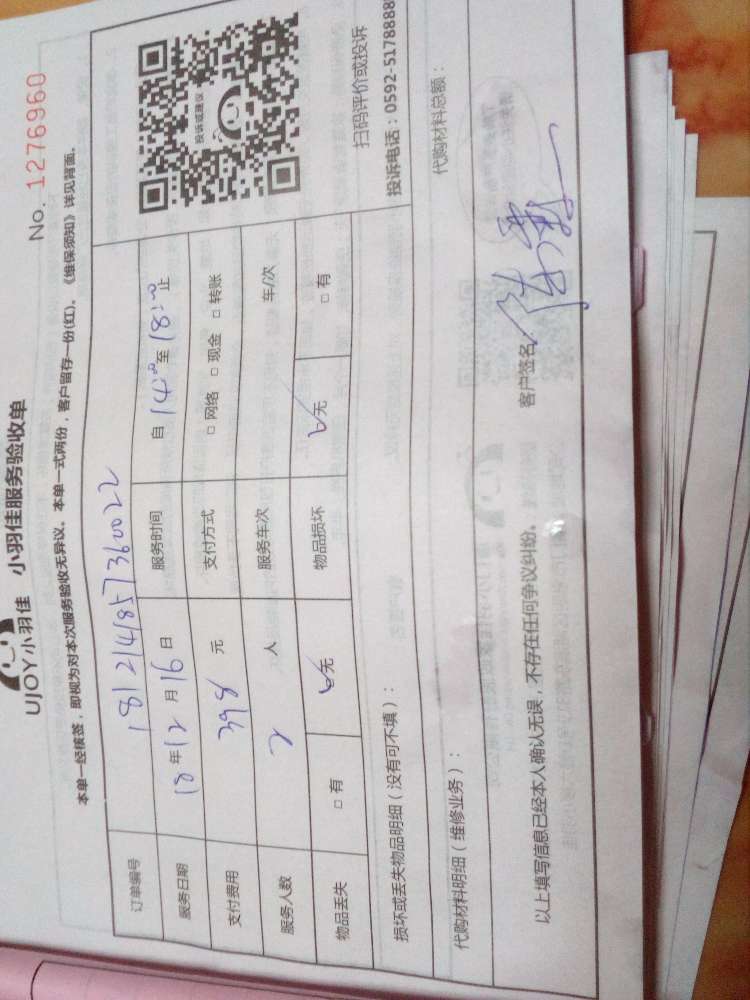 No. 1276960
UJOY小羽佳 小羽佳服务验收单
本单一经核签，即视为对本次服务验收无异议。本单一式两份，客户留存一份(红)。《维保须知》详见背面。
订单编号 181214857360022
服务日期 18年12月16日 服务时间 自14:00至18:00止
支付费用 398元 支付方式 □网络 □现金 □转账
服务人数 2人 服务车次 车/次
物品丢失 □有 ☑无 物品损坏 ☑无 □有
投诉或建议
扫码评价或投诉
投诉电话：0592-5178888
损坏或丢失物品明细（没有可不填）：
代购材料明细（维修业务）： 代购材料总额：
以上填写信息已经本人确认无误，不存在任何争议纠纷。 客户签名：